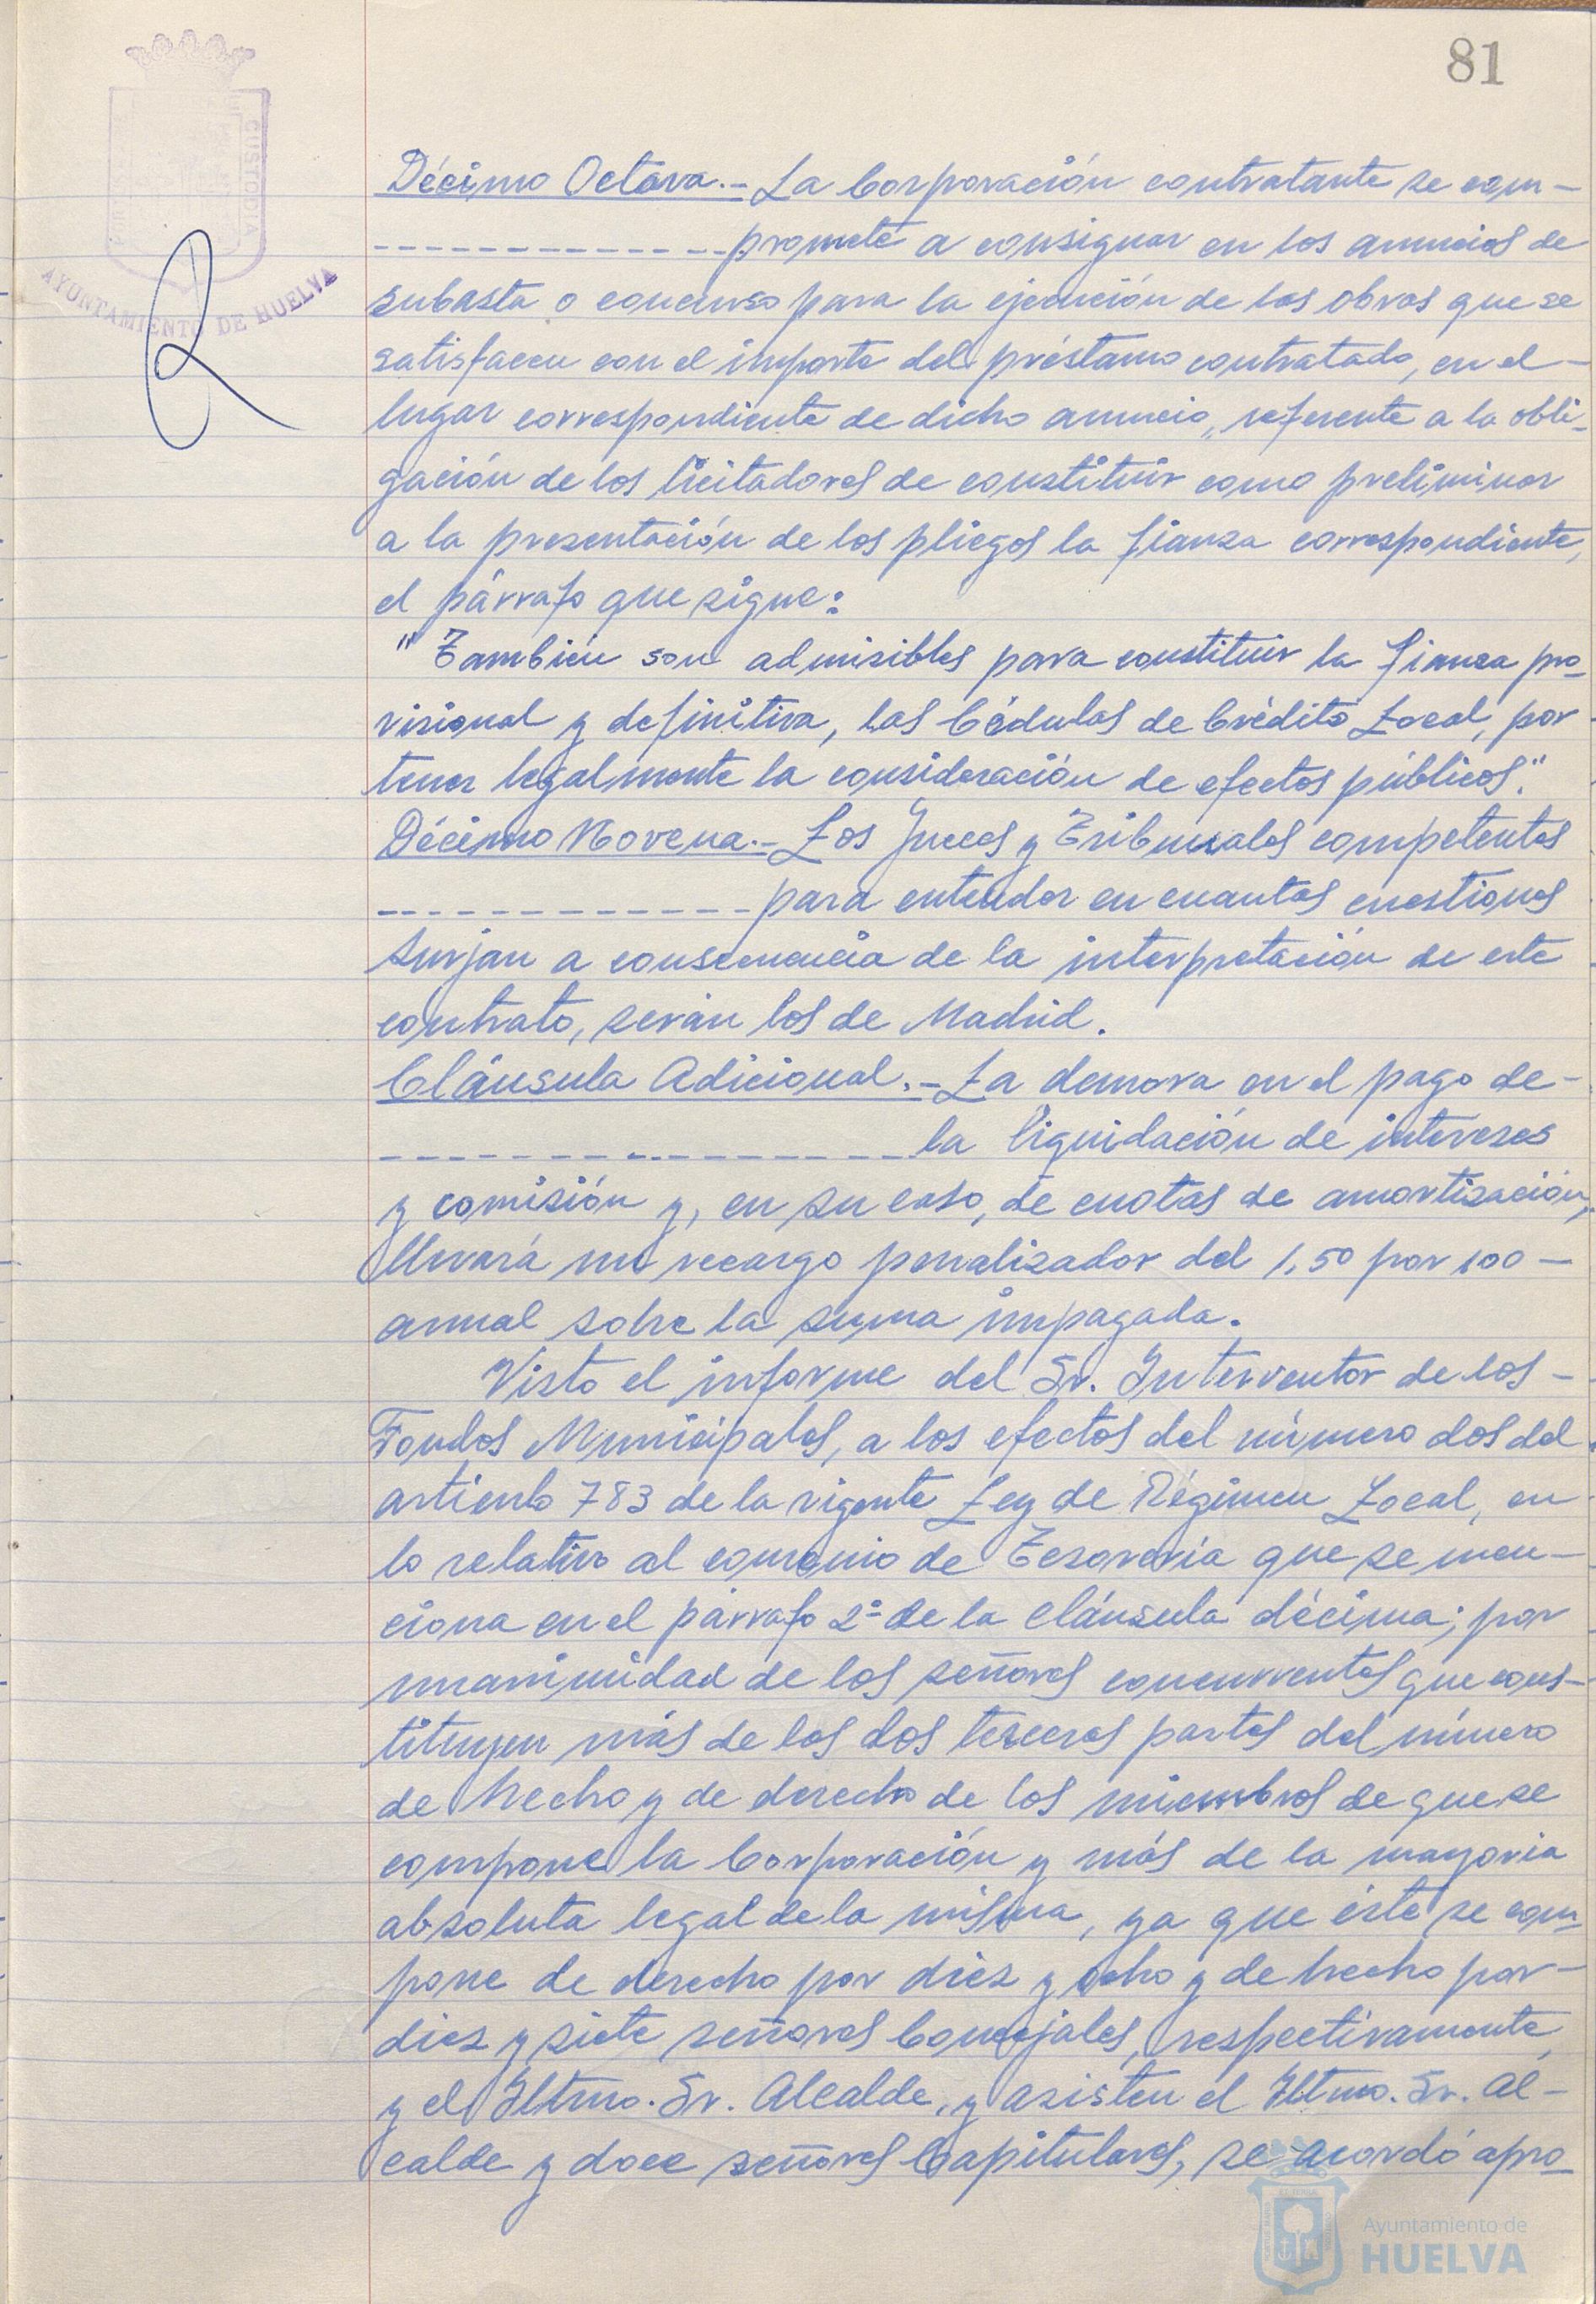 81
CUSTODIA
AYUNTAMIENTO DE HUELVA
Décimo Octava.- La Corporación contratante se com-
promete a consignar en los anuncios de
subasta o concurso para la ejecución de las obras que se
satisfacen con el importe del préstamo contratado, en el-
lugar correspondiente de dicho anuncio, referente a la obli-
gación de los licitadores de constituir como preliminar
a la presentación de los pliegos la fianza correspondiente,
el párrafo que sigue:
"También son admisibles para constituir la fianza pro-
visional y definitiva, las Cédulas de Crédito Local, por
tener legalmente la consideración de efectos públicos."
Décimo Novena.- Los Jueces y Tribunales competentes
para entender en cuantas cuestiones
surjan a consecuencia de la interpretación de este
contrato, serán los de Madrid.
Cláusula Adicional.- La demora en el pago de-
la liquidación de intereses
y comisión y, en su caso, de cuotas de amortización,
llevará un recargo penalizador del 1,50 por 100-
anual sobre la suma impagada.
Visto el informe del Sr. Interventor de los-
Fondos Municipales, a los efectos del número dos del
artículo 783 de la vigente Ley de Régimen Local, en
lo relativo al convenio de Tesorería que se men-
ciona en el párrafo 2º de la cláusula décima; por
unanimidad de los señores concurrentes que cons-
tituyen más de las dos terceras partes del número
de hecho y de derecho de los miembros de que se
compone la Corporación y más de la mayoría
absoluta legal de la misma, ya que ésta se com-
pone de derecho por diez y ocho y de hecho por-
diez y siete señores Concejales, respectivamente,
y el Iltmo. Sr. Alcalde, y asisten el Iltmo. Sr. Al-
calde y doce señores Capitulares, se acordó apro-
Ayuntamiento de
HUELVA